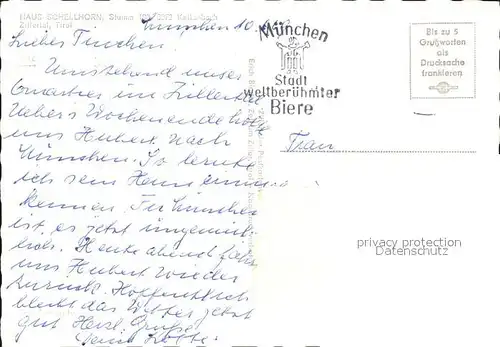 HAUS SCHELLHORN, Stumm
Zillertal, Tirol
München 10.
Liebes Tinchen
Umstehend unser
Quartier im Zillertal
Ueber's Wochenende holte
uns Hubert nach
München. So lernte
ich sein Heim einmal
kennen. In München
ist es jetzt ungemüt-
lich. Heute abend fährt
uns Hubert wieder
zurück. Hoffentlich
bleibt das Wetter jetzt
gut Herzl. Grüße
Deine Lotte
München
Stadt
weltberühmter
Biere
Bis zu 5
Grußworten
als
Drucksache
frankieren
Frau
privacy protection
Datenschutz